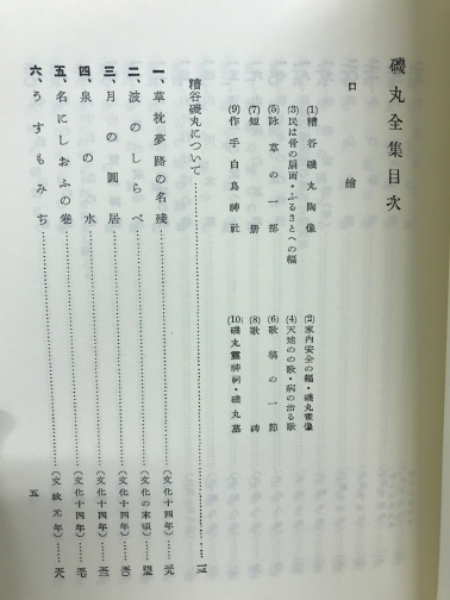 磯丸全集目次
口繪
(1) 糟谷磯丸陶像
(2) 家内安全の幅・磯丸壷像
(3) 民は骨の扇面・ふるさとへの幅
(4) 天地のの歌・病の治る歌
(5) 詠草の一部
(6) 歌稿の一節
(7) 短册
(8) 歌碑
(9) 作手白鳥神社
(10) 磯丸靈神祠・磯丸墓
糟谷磯丸について……一三
一、草枕夢路の名殘……(文化十四年)……元
二、波のしらべ……(文化の末頃)……
三、月の圓居……(文化十四年)……
四、泉の水……(文化十四年)……
五、名にしおふの卷……(文化十四年)……
六、うすもみぢ……(文政元年)……
五